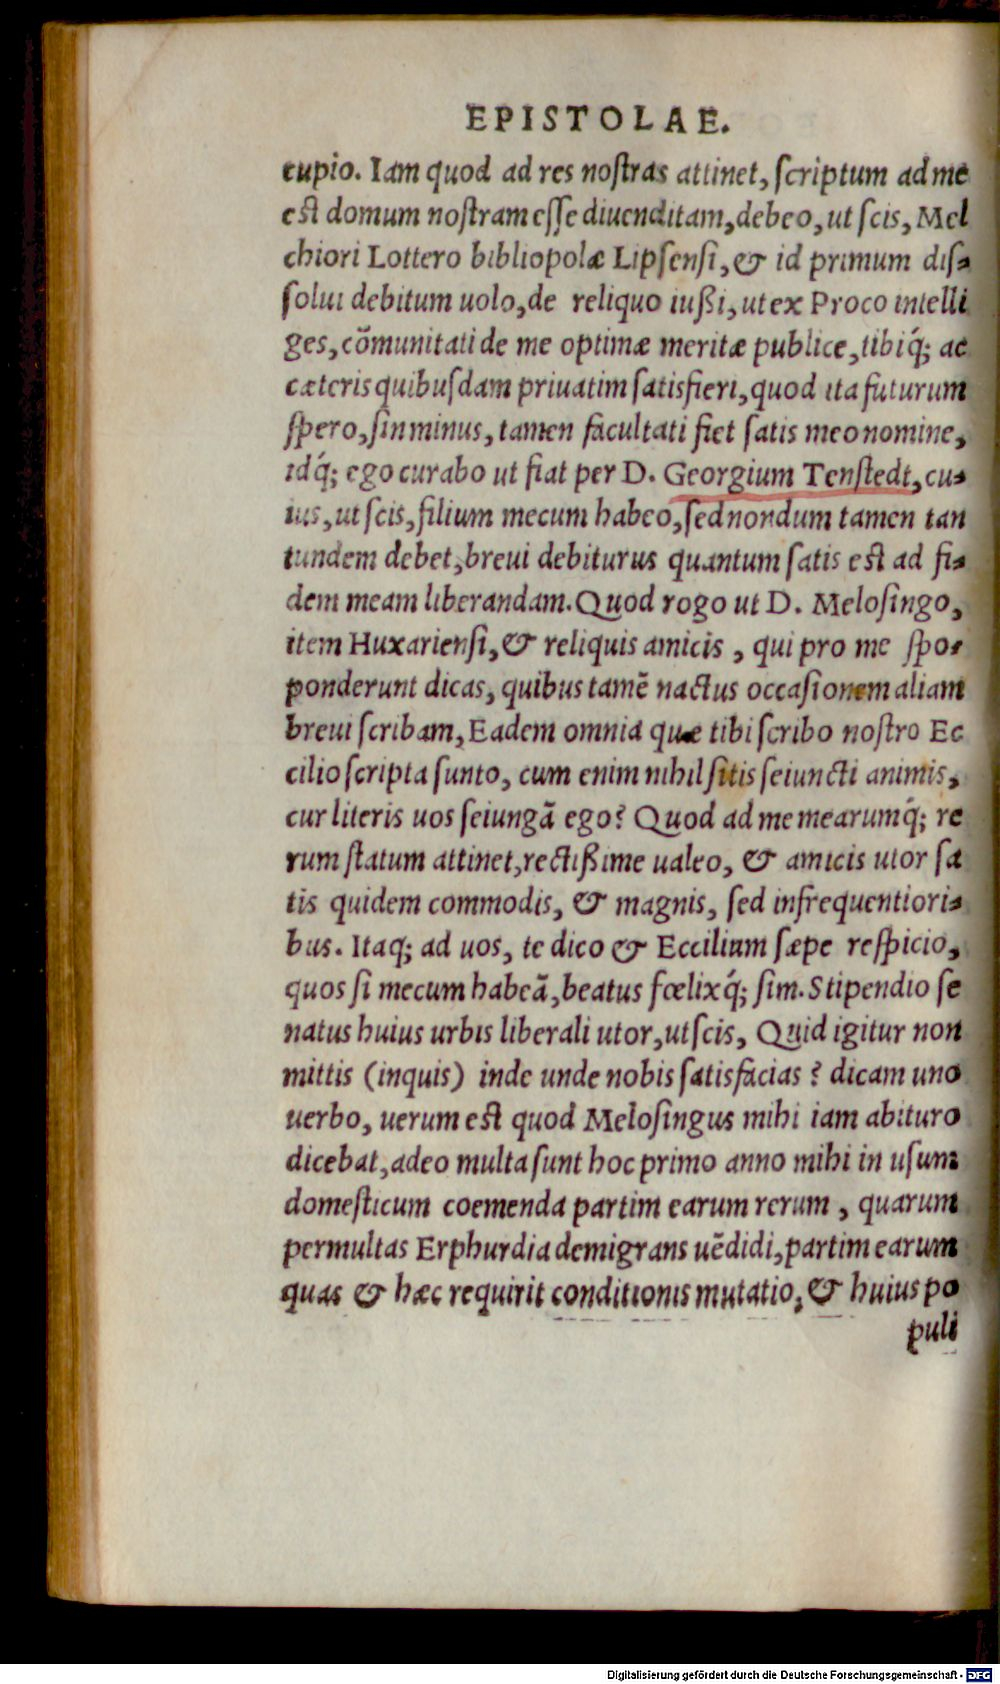 EPISTOLAE.
cupio. Iam quod ad res noſtras attinet, ſcriptum ad me
eſt domum noſtram eſſe diuenditam, debeo, ut ſcis, Mel
chiori Lottero bibliopolæ Lipſenſi, & id primum diſ⸗
ſolui debitum uolo, de reliquo iußi, ut ex Proco intelli
ges, cōmunitati de me optimæ meritæ publice, tibiq́; ac
cæteris quibuſdam priuatim ſatisfieri, quod ita futurum
ſpero, ſin minus, tamen facultati fiet ſatis meo nomine,
idq́; ego curabo ut fiat per D. Georgium Tenſtedt, cu⸗
ius, ut ſcis, filium mecum habeo, ſed nondum tamen tan
tundem debet, breui debiturus quantum ſatis eſt ad fi⸗
dem meam liberandam. Quod rogo ut D. Meloſingo,
item Huxarienſi, & reliquis amicis, qui pro me ſpo⸗
ponderunt dicas, quibus tamē nactus occaſionem aliam
breui ſcribam, Eadem omnia quæ tibi ſcribo noſtro Ec
cilio ſcripta ſunto, cum enim nihil ſitis ſeiuncti animis,
cur literis uos ſeiungā ego? Quod ad me mearumq́; re
rum ſtatum attinet, rectißime ualeo, & amicis utor ſa
tis quidem commodis, & magnis, ſed infrequentiori⸗
bus. Itaq; ad uos, te dico & Eccilium ſæpe reſpicio,
quos ſi mecum habeā, beatus fœlixq́; ſim. Stipendio ſe
natus huius urbis liberali utor, ut ſcis, Quid igitur non
mittis (inquis) inde unde nobis ſatisfacias? dicam uno
uerbo, uerum eſt quod Meloſingus mihi iam abituro
dicebat, adeo multa ſunt hoc primo anno mihi in uſum
domeſticum coemenda partim earum rerum, quarum
permultas Erphurdia demigrans uēdidi, partim earum
quas & hæc requirit conditionis mutatio, & huius po
puli
Digitalisierung gefördert durch die Deutsche Forschungsgemeinschaft - DFG